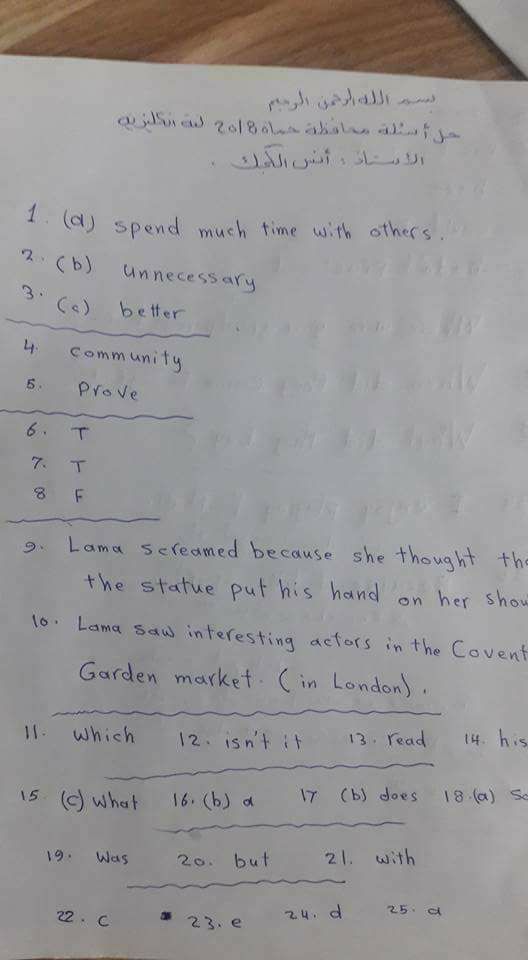 بسم الله الرحمن الرحيم
حل أسئلة محافظة حماة 2018 لغة انكليزية
الاستاذ : أنس الكجك .
1. (a) spend much time with others.
2. (b) unnecessary
3. (c) better
4. community
5. Prove
6. T
7. T
8 F
9. Lama screamed because she thought th
the statue put his hand on her shou
10. Lama saw interesting actors in the Covent
Garden market. (in London).
11. which 12. isn't it 13. read 14. his
15. (c) what 16. (b) a 17 (b) does 18. (a) So
19. was 20. but 21. with
22. c 23. e 24. d 25. a